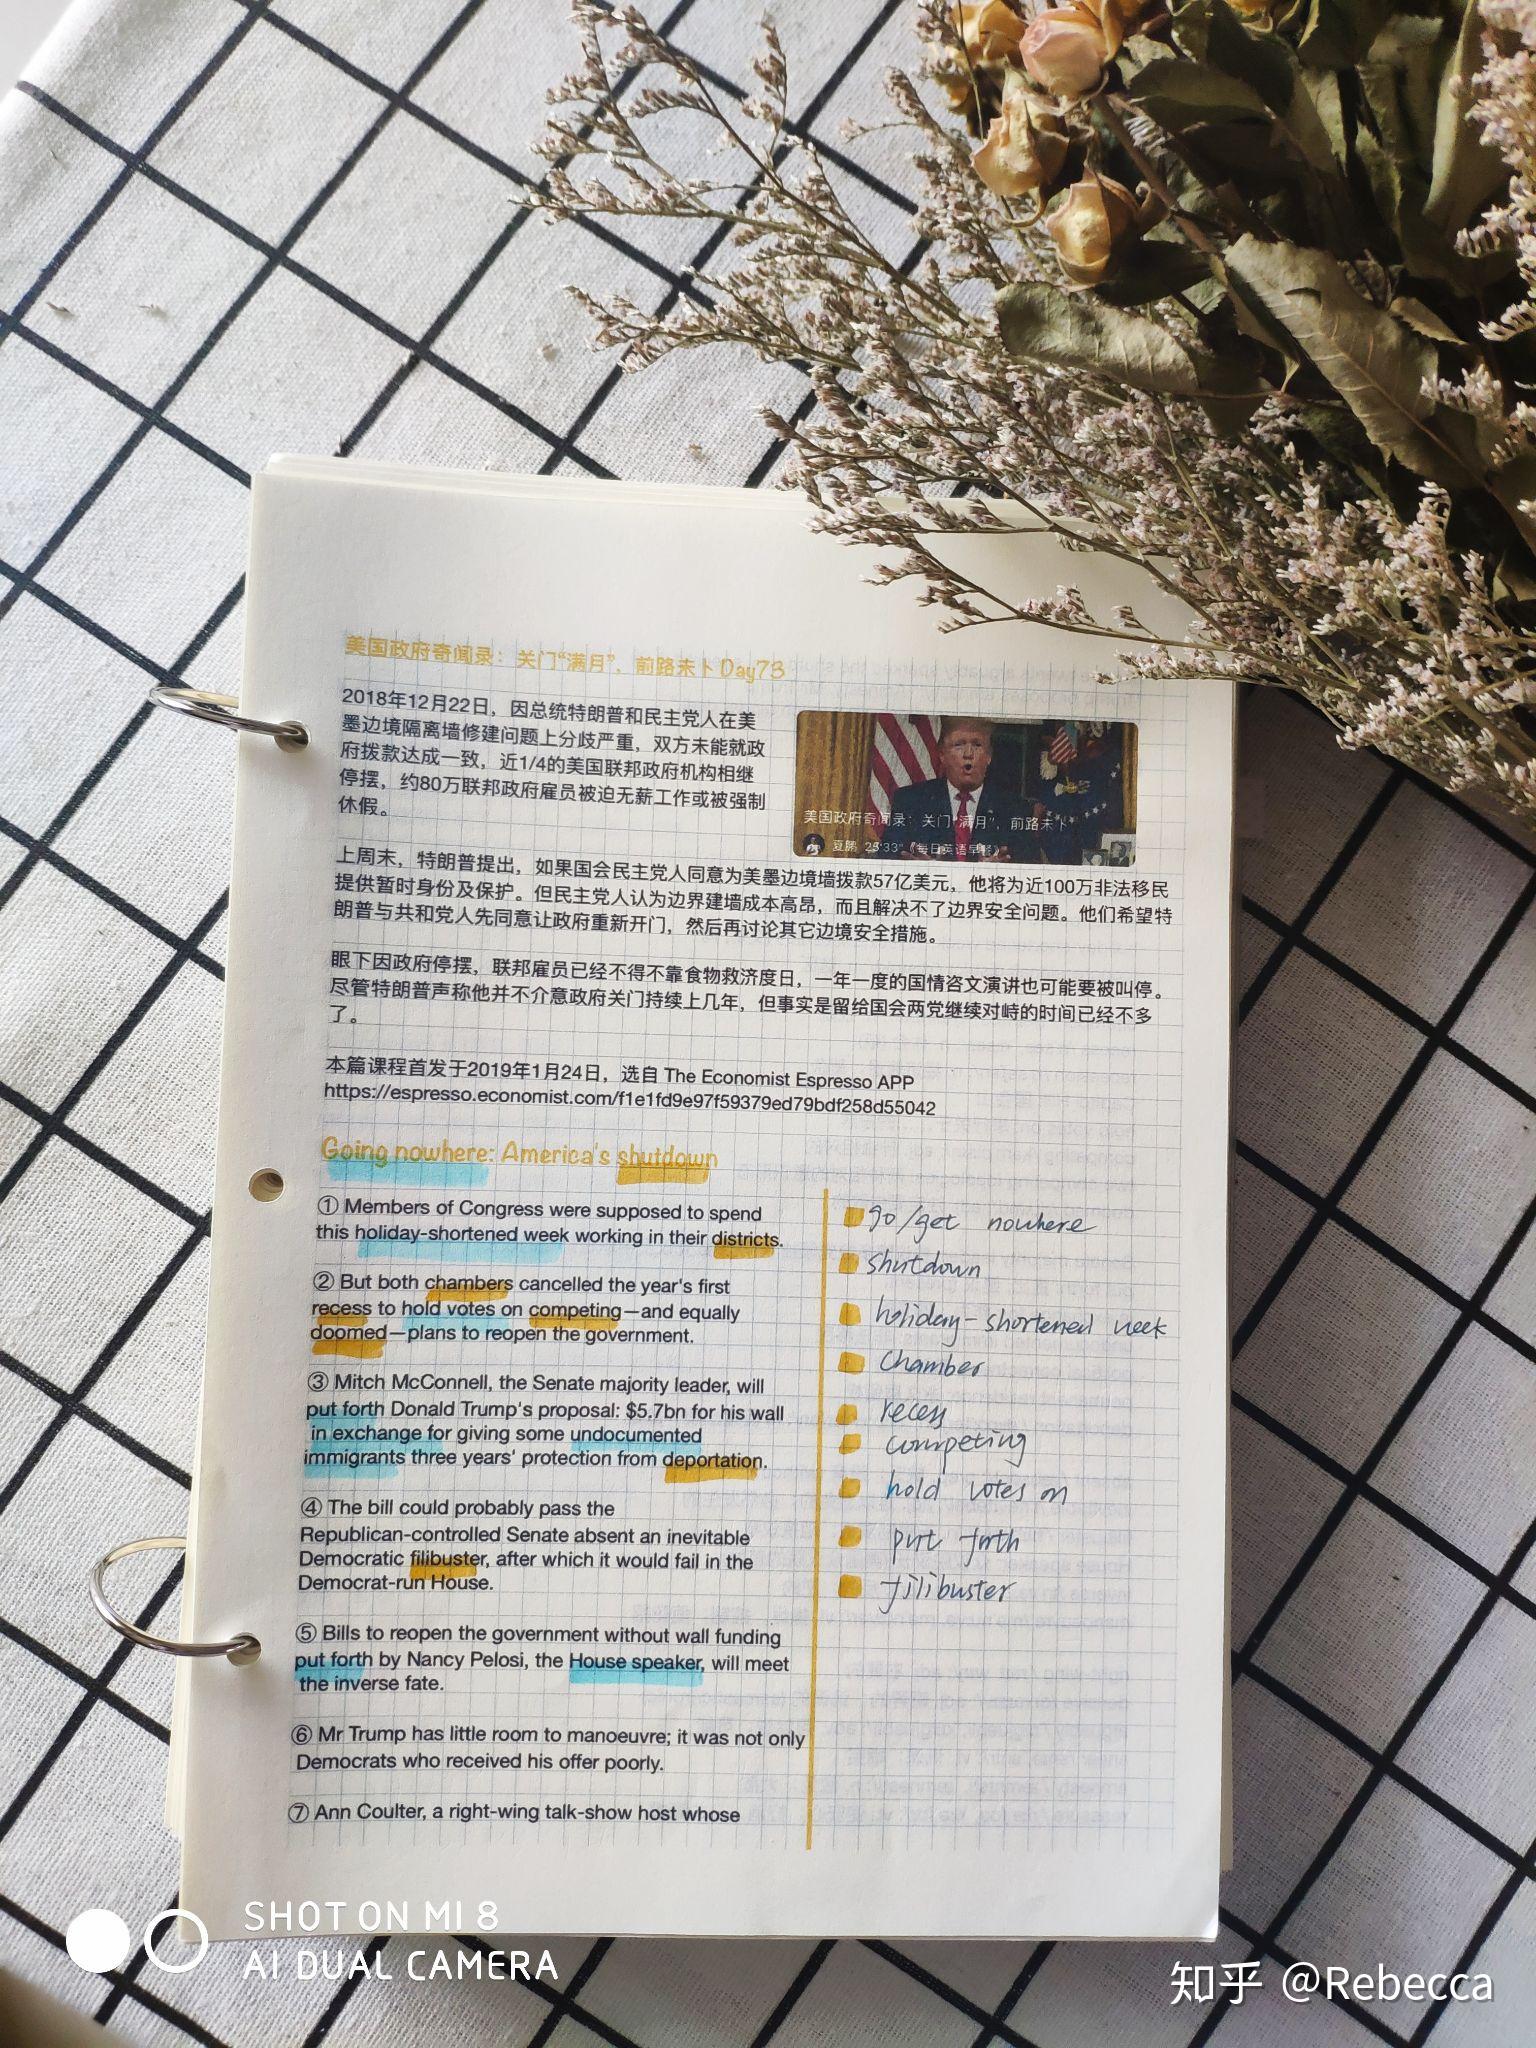 美国政府奇闻录：关门“满月”，前路未卜 Day73
2018年12月22日，因总统特朗普和民主党人在美
墨边境隔离墙修建问题上分歧严重，双方未能就政
府拨款达成一致，近1/4的美国联邦政府机构相继
停摆，约80万联邦政府雇员被迫无薪工作或被强制
休假。
美国政府奇闻录：关门“满月”，前路未卜
夏鹏 25'33"《每日英语早餐》
上周末，特朗普提出，如果国会民主党人同意为美墨边境墙拨款57亿美元，他将为近100万非法移民
提供暂时身份及保护。但民主党人认为边界建墙成本高昂，而且解决不了边界安全问题。他们希望特
朗普与共和党人先同意让政府重新开门，然后再讨论其它边境安全措施。
眼下因政府停摆，联邦雇员已经不得不靠食物救济度日，一年一度的国情咨文演讲也可能要被叫停。
尽管特朗普声称他并不介意政府关门持续上几年，但事实是留给国会两党继续对峙的时间已经不多
了。
本篇课程首发于2019年1月24日，选自 The Economist Espresso APP
https://espresso.economist.com/f1e1fd9e97f59379ed79bdf258d55042
Going nowhere: America's shutdown
① Members of Congress were supposed to spend
this holiday-shortened week working in their districts.
② But both chambers cancelled the year's first
recess to hold votes on competing—and equally
doomed—plans to reopen the government.
③ Mitch McConnell, the Senate majority leader, will
put forth Donald Trump's proposal: $5.7bn for his wall
in exchange for giving some undocumented
immigrants three years' protection from deportation.
④ The bill could probably pass the
Republican-controlled Senate absent an inevitable
Democratic filibuster, after which it would fail in the
Democrat-run House.
⑤ Bills to reopen the government without wall funding
put forth by Nancy Pelosi, the House speaker, will meet
the inverse fate.
⑥ Mr Trump has little room to manoeuvre; it was not only
Democrats who received his offer poorly.
⑦ Ann Coulter, a right-wing talk-show host whose
go/get nowhere
shutdown
holiday-shortened week
chamber
recess
competing
hold votes on
put forth
filibuster
SHOT ON MI 8
AI DUAL CAMERA
知乎 @Rebecca